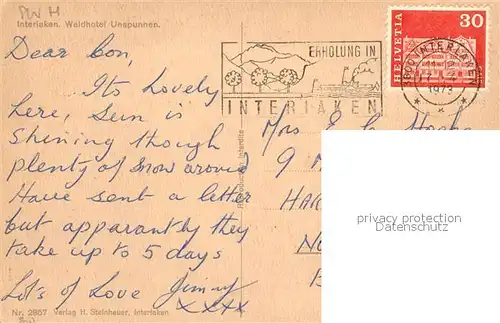 Interlaken. Waldhotel Unspunnen.
Dear Con,
Its Lovely
here, Sun is
Shining though
plenty of Snow around
Have sent a letter
but apparantly they
take up to 5 days
Lots of Love Jimmy
xxxx
Nr. 2867 Verlag H. Steinhauer, Interlaken
Reproduction interdite
ERHOLUNG IN
INTERLAKEN
HELVETIA
30
3800 INTERLAKEN
1973
Mrs E
9 M
HA
privacy protection
Datenschutz